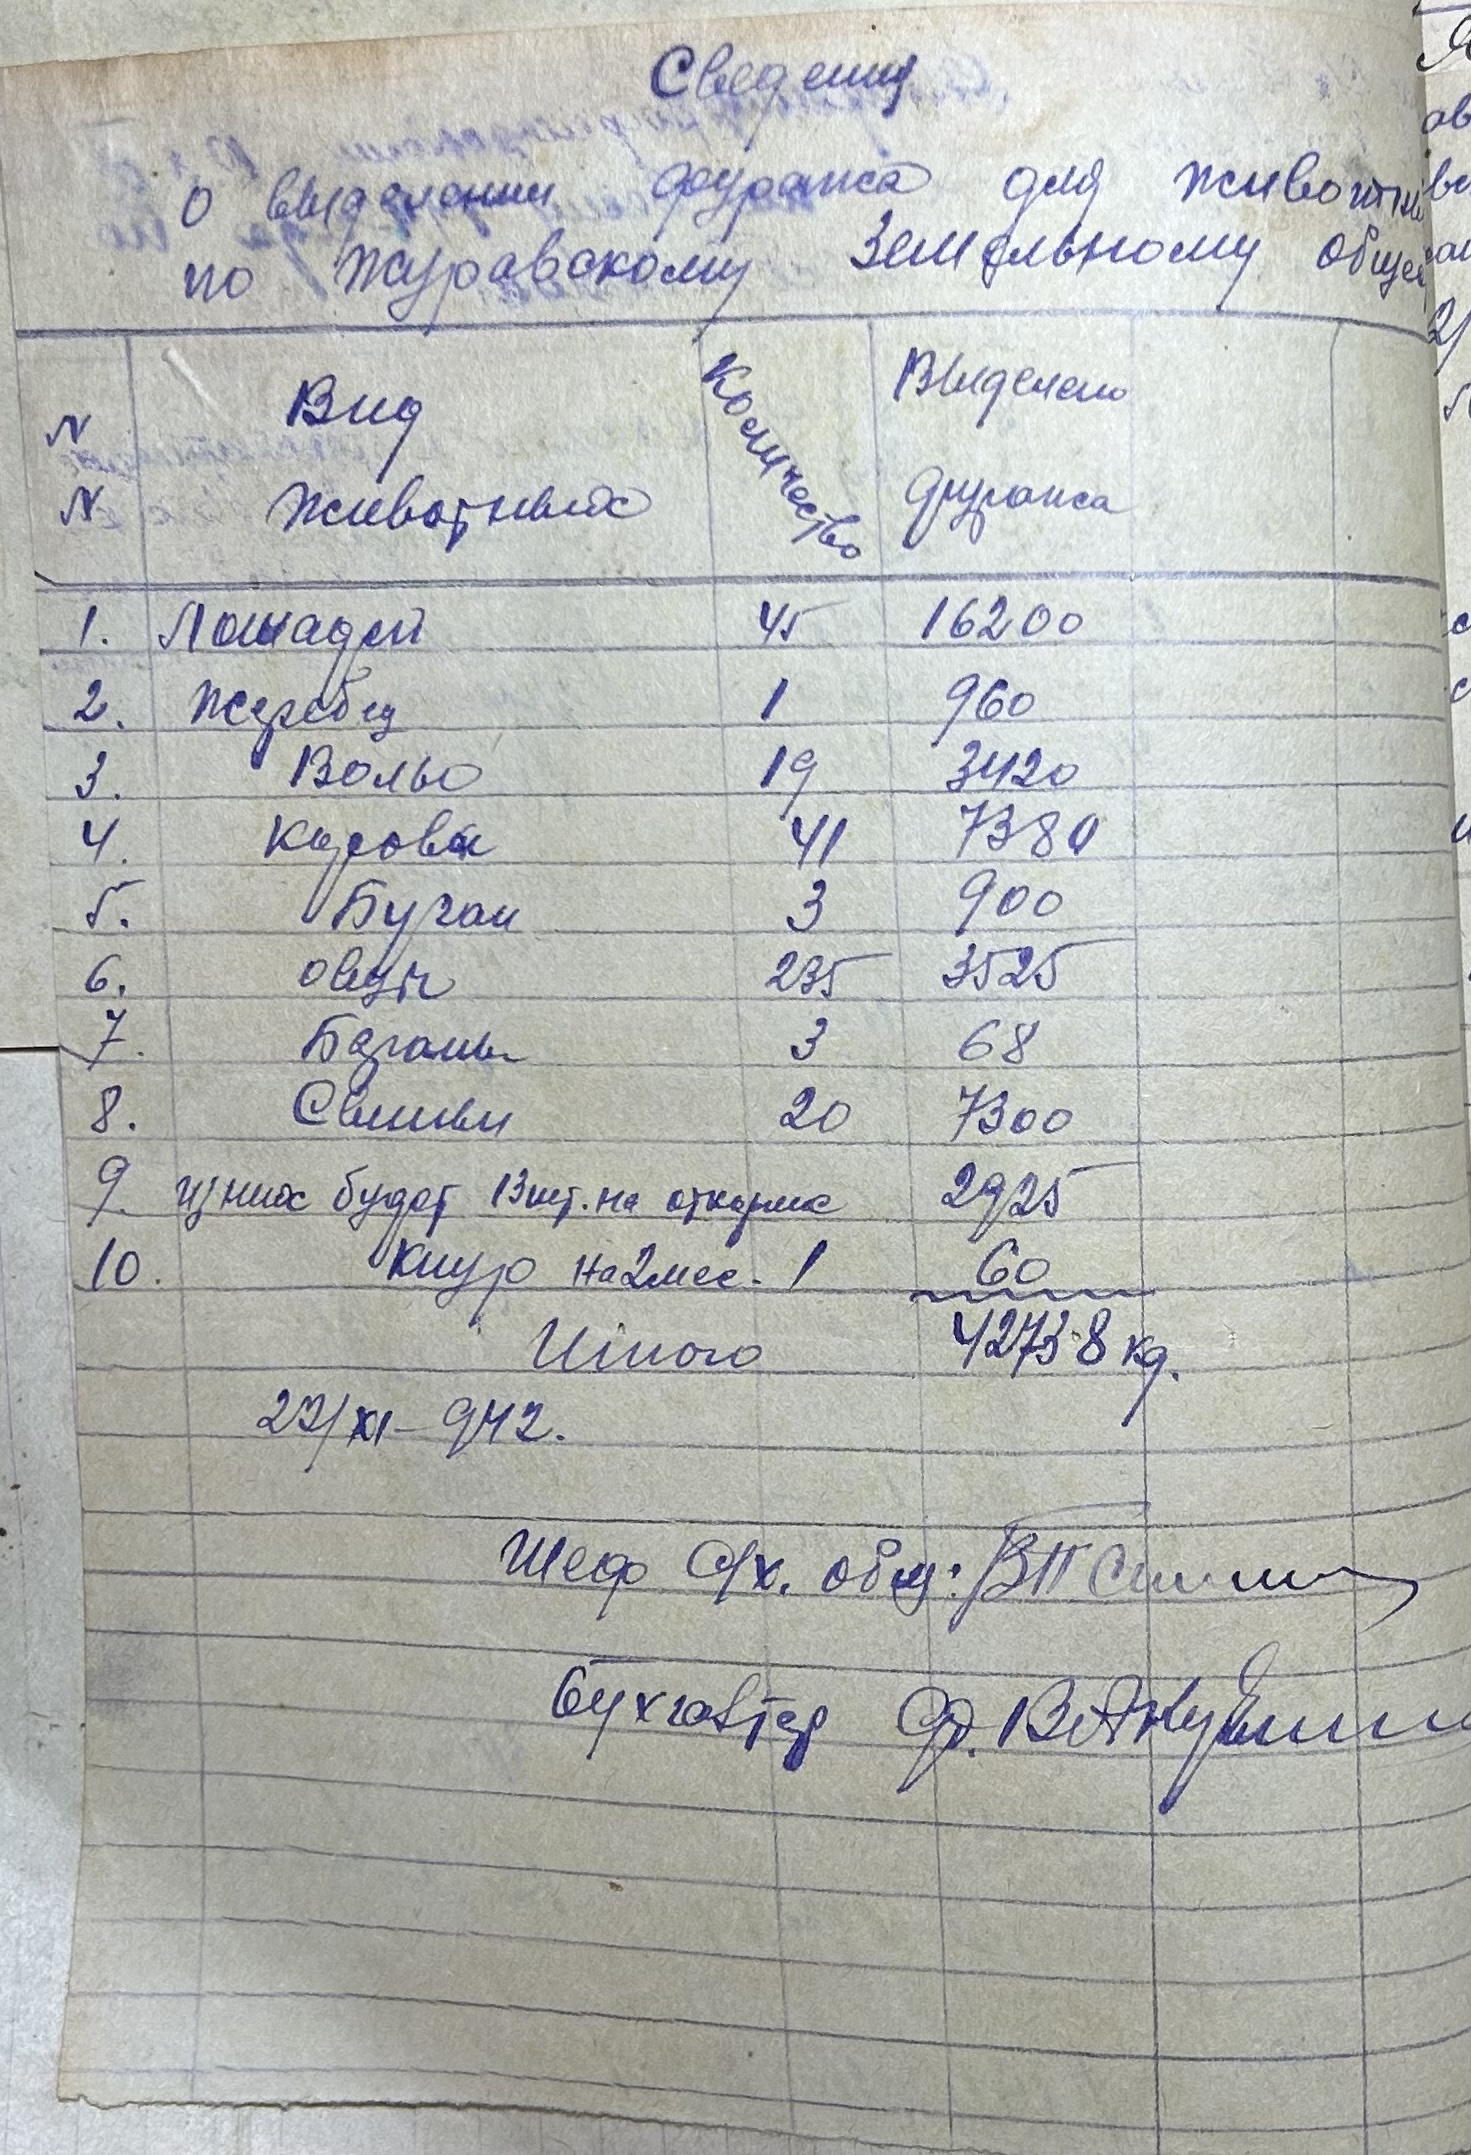 Сведения
о выделении фуража для животн
по Журавскому Земельному общес
N N Вид животных Количество Выделено фуража
1. Лошадей 45 16200
2. Жеребец 1 960
3. Волы 19 3420
4. Коровы 41 7380
5. Бугаи 3 900
6. овцы 235 3525
7. Бараны 3 68
8. Свиньи 20 7300
9. из них будет 13 шт. на откорме 2925
10. Кнур на 2 мес. 1 60
Итого 42738 кг.
22/XI – 942.
Шеф с/х. общ:
Бухгалтер